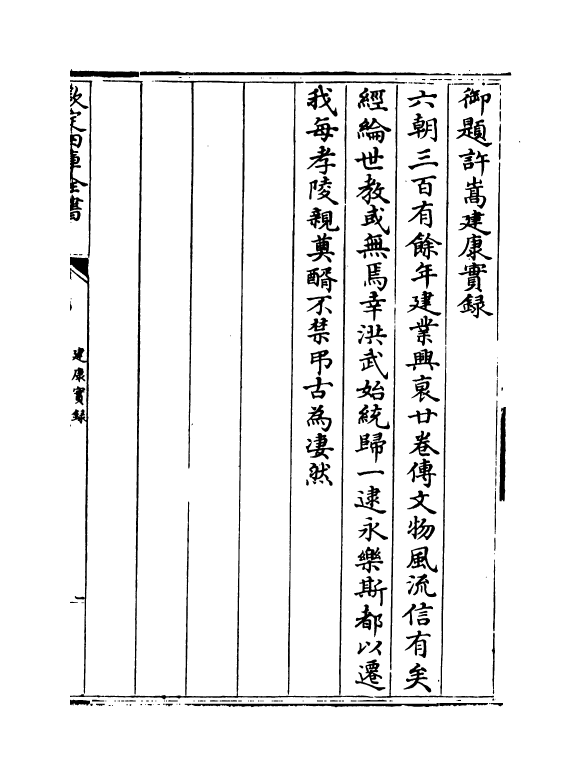 御題許嵩建康實録
六朝三百有餘年建業興衰廿卷傳文物風流信有矣
經綸世教或無焉幸洪武始統歸一逮永樂斯都以遷
我每孝陵親奠酹不禁弔古為淒然
欽定四庫全書
建康實録
一